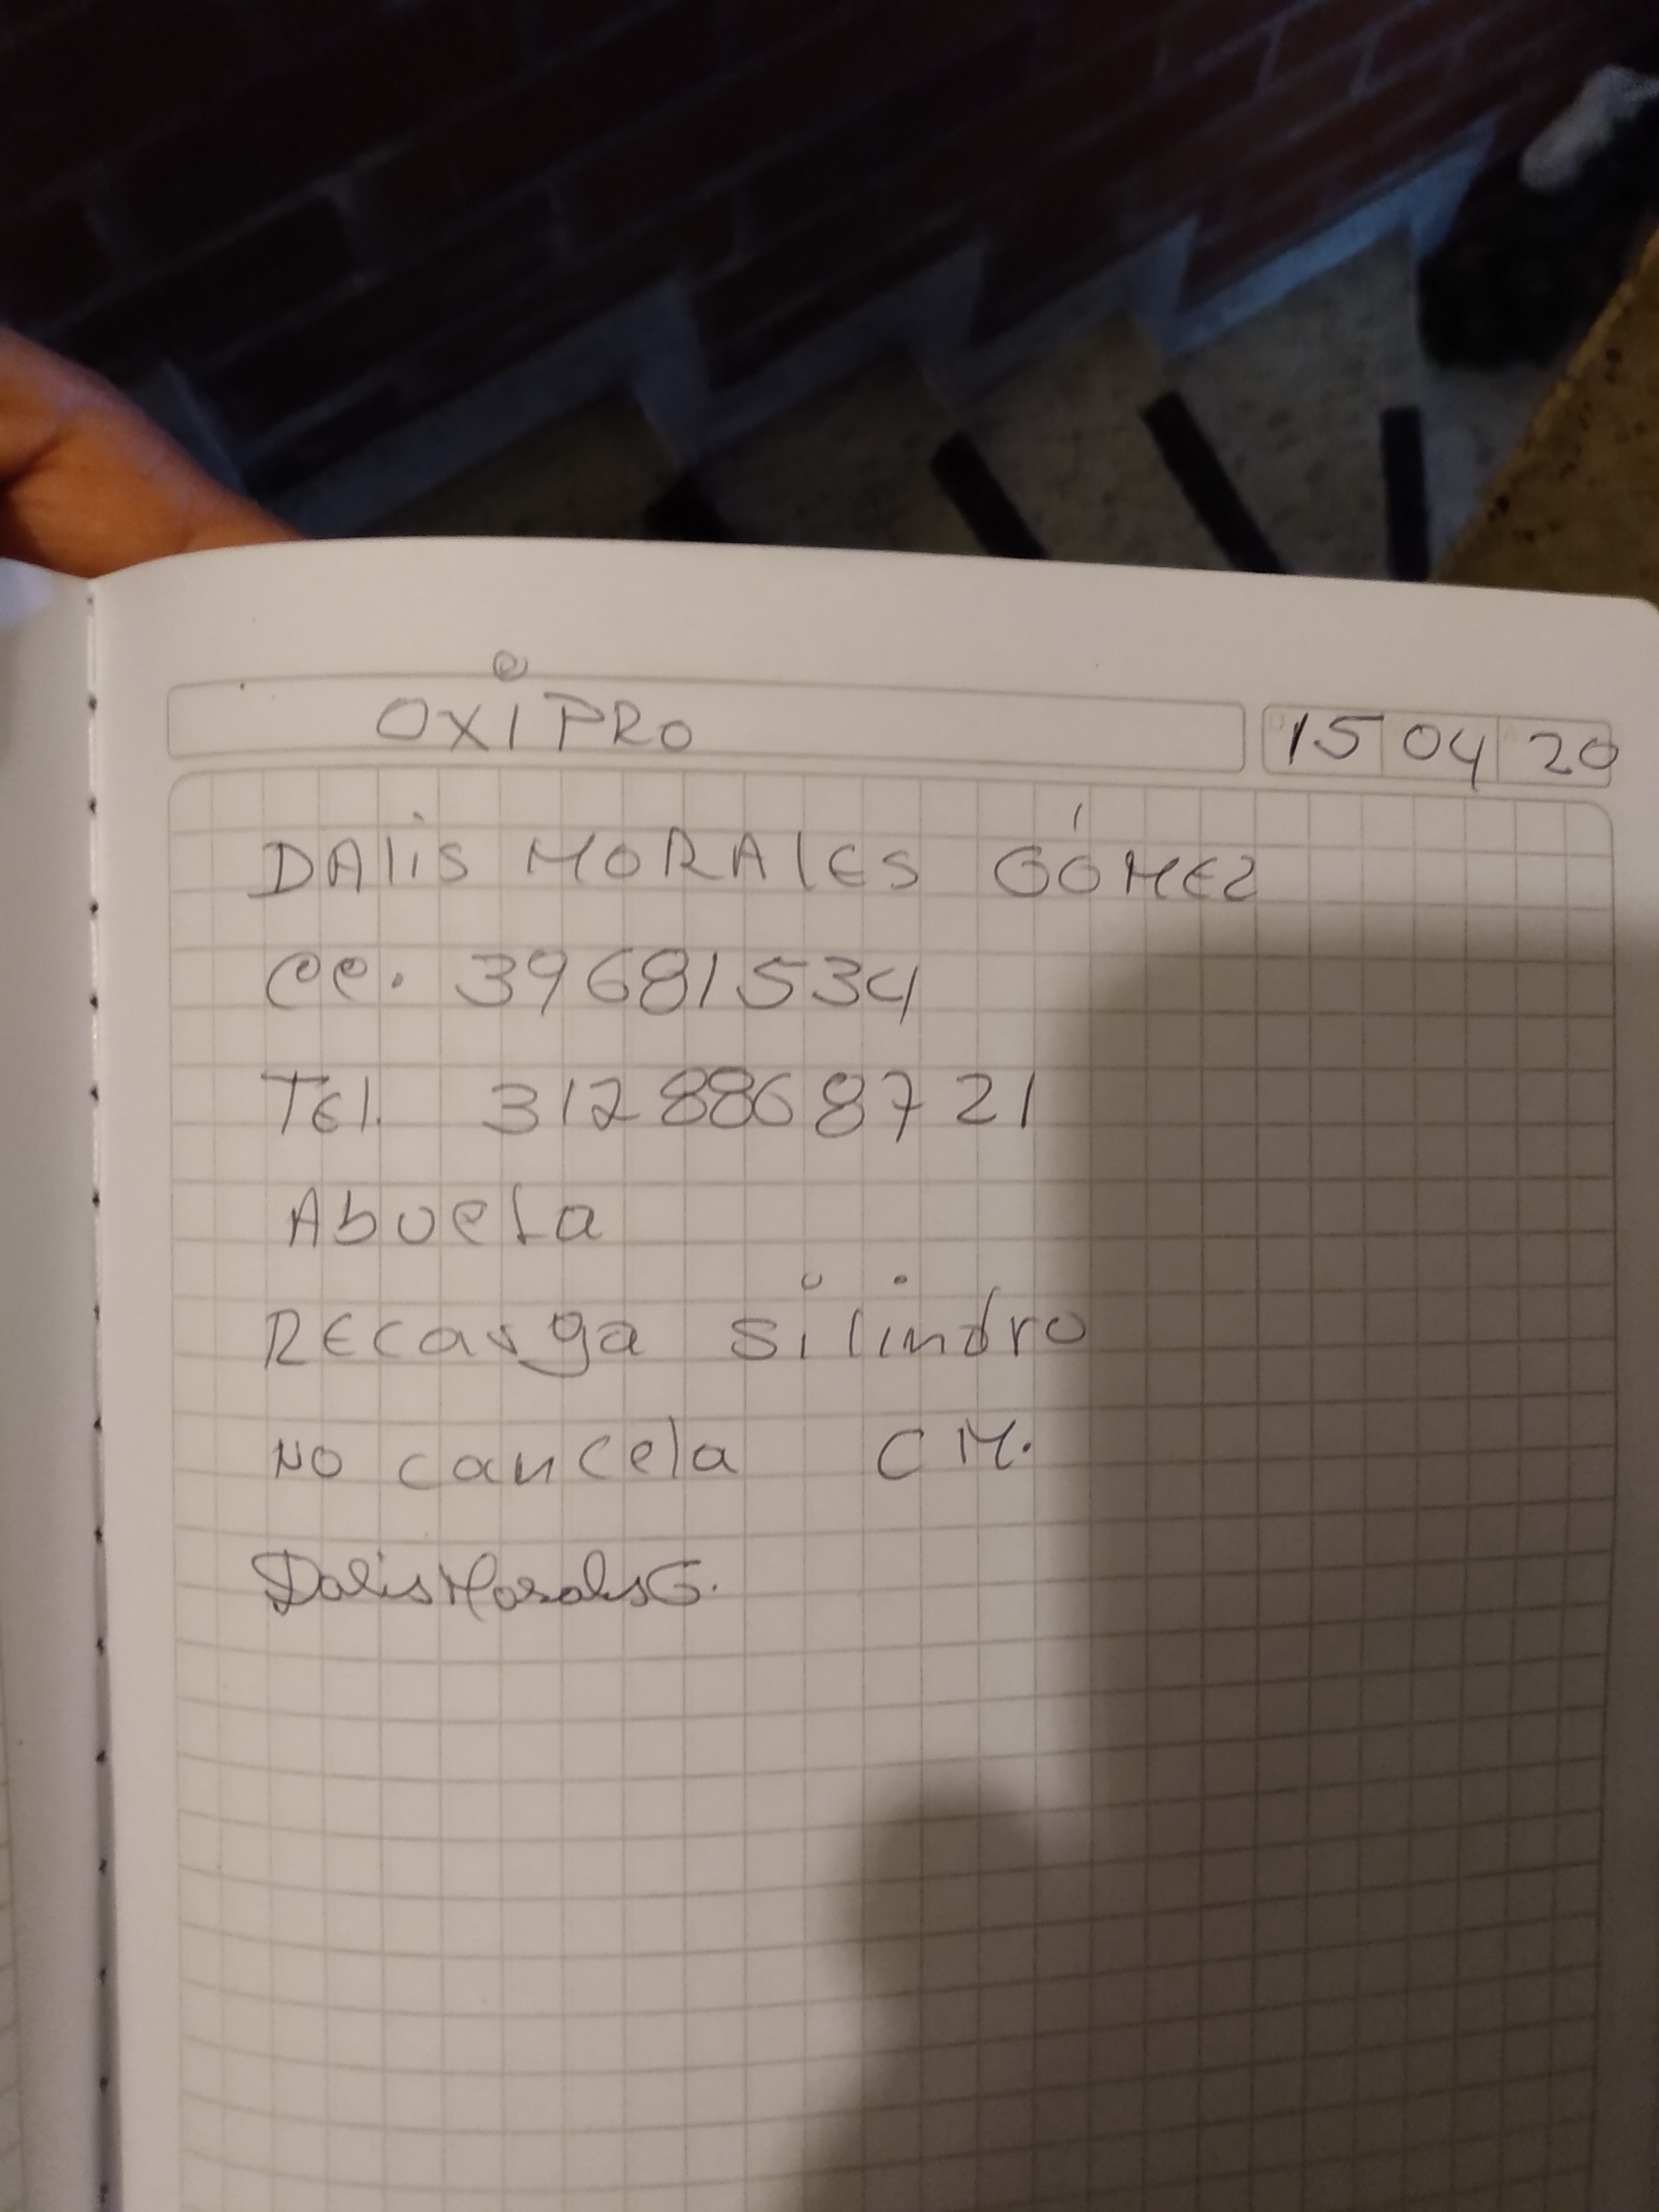 OXIPRO 15 04 20
DAlis MORAlES GÓMEZ
CC. 39681534
TEl. 3128868721
Abuela
RECarga silindro
NO cancela CM.
Dalis Morales G.